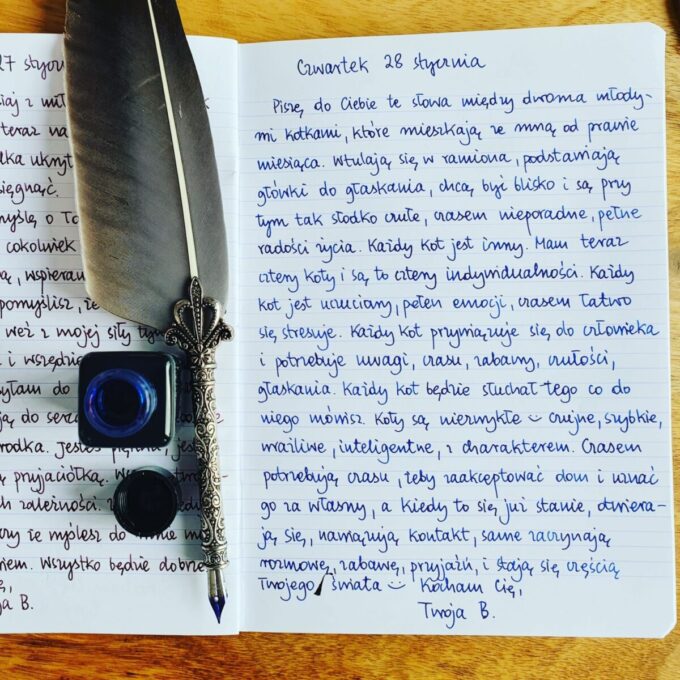 27
teraz na
sięgnąć.
myślę o To
cokolwiek
wspieran
pomyślisz, że
weź z mojej siły
i wszędzie
do
ją do serca
środka. Jesteś
przyjaciółką.
zależności.
że myślesz do
Wszystko będzie dobrze
B.
Czwartek 28 stycznia
Piszę do Ciebie te słowa między dwoma młody-
mi kotkami, które mieszkają ze mną od prawie
miesiąca. Wtulają się w ramiona, podstawiają
główki do głaskania, chcą być blisko i są przy
tym tak słodko czułe, czasem nieporadne, pełne
radości życia. Każdy kot jest inny. Mam teraz
cztery koty i są to cztery indywidualności. Każdy
kot jest uczuciowy, pełen emocji, czasem łatwo
się stresuje. Każdy kot przywiązuje się do człowieka
i potrzebuje uwagi, czasu, zabawy, czułości,
głaskania. Każdy kot będzie słuchał tego co do
niego mówisz. Koty są niezwykłe czujne, szybkie,
wrażliwe, inteligentne, z charakterem. Czasem
potrzebują czasu, żeby zaakceptować dom i uznać
go za własny, a kiedy to się już stanie, otwiera-
ją się, nawiązują kontakt, same zaczynają
rozmowę, zabawę, przyjaźń, i stają się częścią
Twojego świata Kocham Cię,
Twoja B.